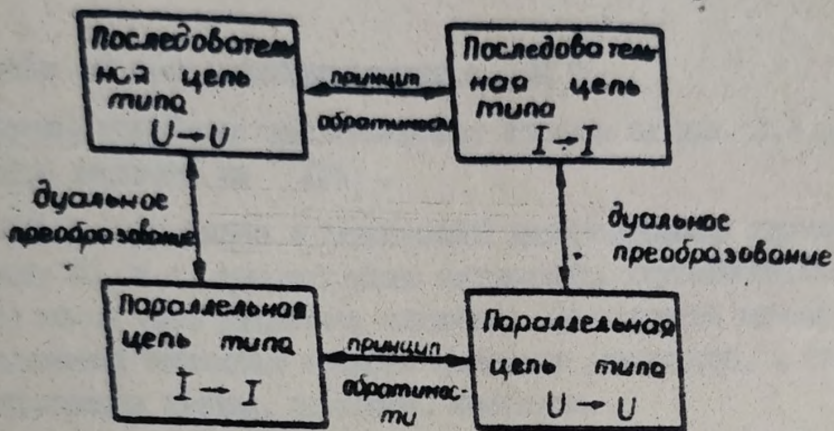 Последователь
ная цепь
типа
U → U
принцип
обратимости
Последователь
ная цепь
типа
I → I
дуальное
преобразование
дуальное
преобразование
Параллельная
цепь типа
I → I
принцип
обратимос-
ти
Параллельная
цепь типа
U → U